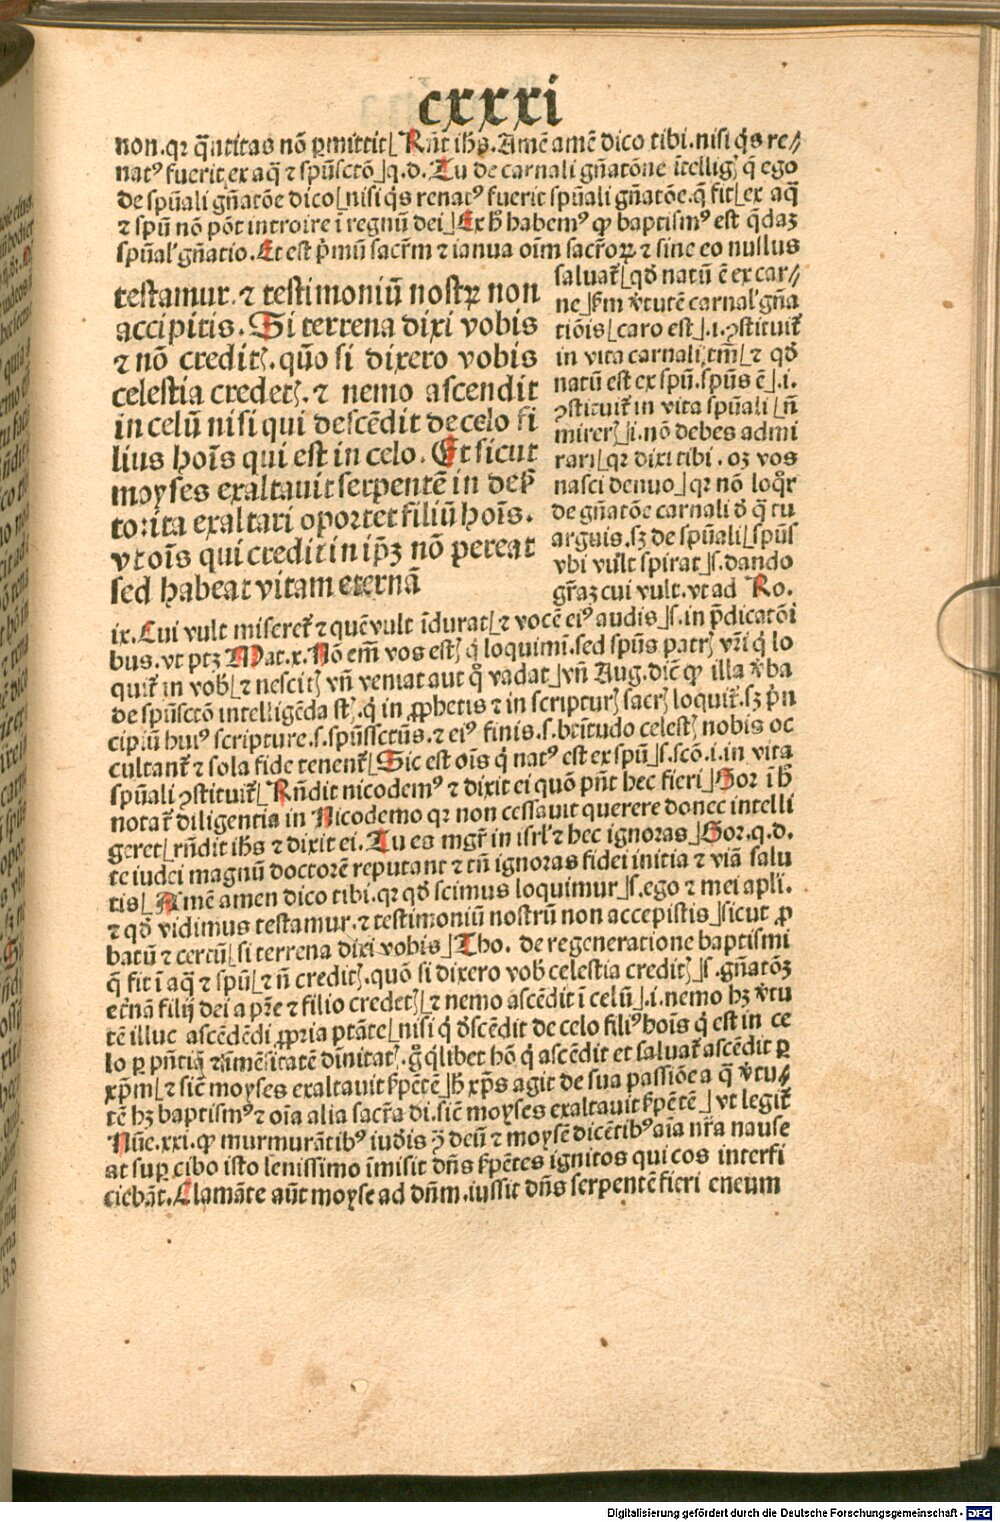 cxxxi
non.qꝛ q̄ntitas nō ꝑmittit⌊ Rn̄t ih̄s. Amē amē dico tibi.nisi q̇s re⸗
natꝰ fuerit ex aq̄ ⁊ spūsctō⌋q.d. Tu de carnali gn̄atōne ītelligꝭ q̄ ego
de spūali gn̄atōe dico⌊nisi q̇s renatꝰ fuerit spūali gn̄atōe.q̄ fit⌊ex aq̄
⁊ spū nō pōt introire ī regnū dei⌋Ex h̄ habemꝰ ꝙ baptismꝰ est q̄daꝫ
spūal' gn̄atio. Et est p̄mū sacr̄m ⁊ ianua oīm sacr̄oꝝ ⁊ sine eo nullus
testamur.⁊ testimoniū nostꝝ non
accipitis. Si terrena dixi vobis
⁊ nō creditꝭ.quō si dixero vobis
celestia credetꝭ.⁊ nemo ascendit
in celū nisi qui descēdit de celo fi
lius hoīs qui est in celo. Et sicut
moyses exaltauit serpentē in des̄
to:ita exaltari oportet filiū hoīs.
vt oīs qui credit in ip̄ꝫ nō pereat
sed habeat vitam eternā
saluat̄⌊qd̄ natū ē ex car⸗
ne⌋s̄m v̄tutē carnal' gn̄a
tiōis⌊caro est⌋.i.ꝯstituit̄
in vita carnali tm̄⌊⁊ qd̄
natū est ex spū.spūs ē⌋.i.
ꝯstituit̄ in vita spūali⌊n̄
mirerꝭ⌋i.nō debes admi
rari⌊qꝛ dixi tibi.oꝫ vos
nasci denuo⌋qꝛ nō loq̊r
de gn̄atōe carnali d̄ q̄ tu
arguis.sꝫ de spūali⌊spūs
vbi vult spirat⌋s.dando
gr̄aꝫ cui vult.vt ad Ro.
ix. Cui vult miseret̄ ⁊ quē vult īdurat⌊⁊ vocē eiꝰ audis⌋s.in p̄dicatōi
bus.vt ptꝫ Mat.x. Nō em̄ vos estꝭ q̇ loquimī.sed spūs patrꝭ vr̄i q̇ lo
quit̄ in vob̄⌊⁊ nescitꝭ vn̄ veniat aut q̊ vadat⌋vn̄ Aug.dic̄ ꝙ illa v̄ba
de spūsctō intelligēda st̄.q̇ in ꝓphetis ⁊ in scripturꝭ sacrꝭ loquit̄.sꝫ p̄n
cipiū huiꝰ scripture.s.spūssctūs.⁊ eiꝰ finis.s.btītudo celestꝭ nobis oc
cultant̄ ⁊ sola fide tenent̄⌊Sic est oīs q̇ natꝰ est ex spū⌋s.scō.i.in vita
spūali ꝯstituit̄⌊Rn̄dit nicodemꝰ ⁊ dixit ei quō pn̄t hec fieri⌋Gor ī h̄
notat̄ diligentia in Nicodemo qꝛ non cessauit querere donec intelli
geret⌊rn̄dit ih̄s ⁊ dixit ei. Tu es mgr̄ in isrl' ⁊ hec ignoras⌋Gor.q.d.
te iudei magnū doctorē reputant ⁊ tn̄ ignoras fidei initia ⁊ viā salu
tis⌊Amē amen dico tibi.qꝛ qd̄ scimus loquimur⌋s.ego ⁊ mei apl'i.
⁊ qd̄ vidimus testamur.⁊ testimoniū nostrū non accepistis⌋sicut ꝓ
batū ⁊ certū⌊si terrena dixi vobis⌋Tho. de regeneratione baptismi
q̄ fit ī aq̄ ⁊ spū⌊⁊ n̄ creditꝭ.quō si dixero vob̄ celestia creditꝭ⌋s.gn̄atōꝫ
et̄nā filij dei a pr̄e ⁊ filio credetꝭ⌊⁊ nemo ascēdit ī celū⌋.i.nemo hꝫ v̄tu
tē illuc ascēdēdi ꝓpria ptāte⌊nisi q̇ d̄scēdit de celo filiꝰ hoīs q̇ est in ce
lo ꝑ pn̄tiā ⁊ īmēsitatē dīnitatꝭ.g̊ q̇libet hō q̇ ascēdit et saluat̄ ascēdit ꝑ
xp̄m⌊⁊ sic̄ moyses exaltauit s̄pētē⌋h̄ xp̄s agit de sua passiōe a q̄ v̄tu⸗
tē hꝫ baptismꝰ ⁊ oīa alia sacr̄a di.sic̄ moyses exaltauit s̄pētē⌋vt legit̄
Nūe.xxi.ꝙ murmurātibꝰ iud̄is ꝯ̄ deū ⁊ moysē dicētibꝰ aīa nr̄a nause
at suꝑ cibo isto lenissimo īmisit dn̄s s̄pētes ignitos qui eos interfi
ciebāt. Clamāte aūt moyse ad dn̄m.iussit dn̄s serpentē fieri eneum
Digitalisierung gefördert durch die Deutsche Forschungsgemeinschaft - DFG